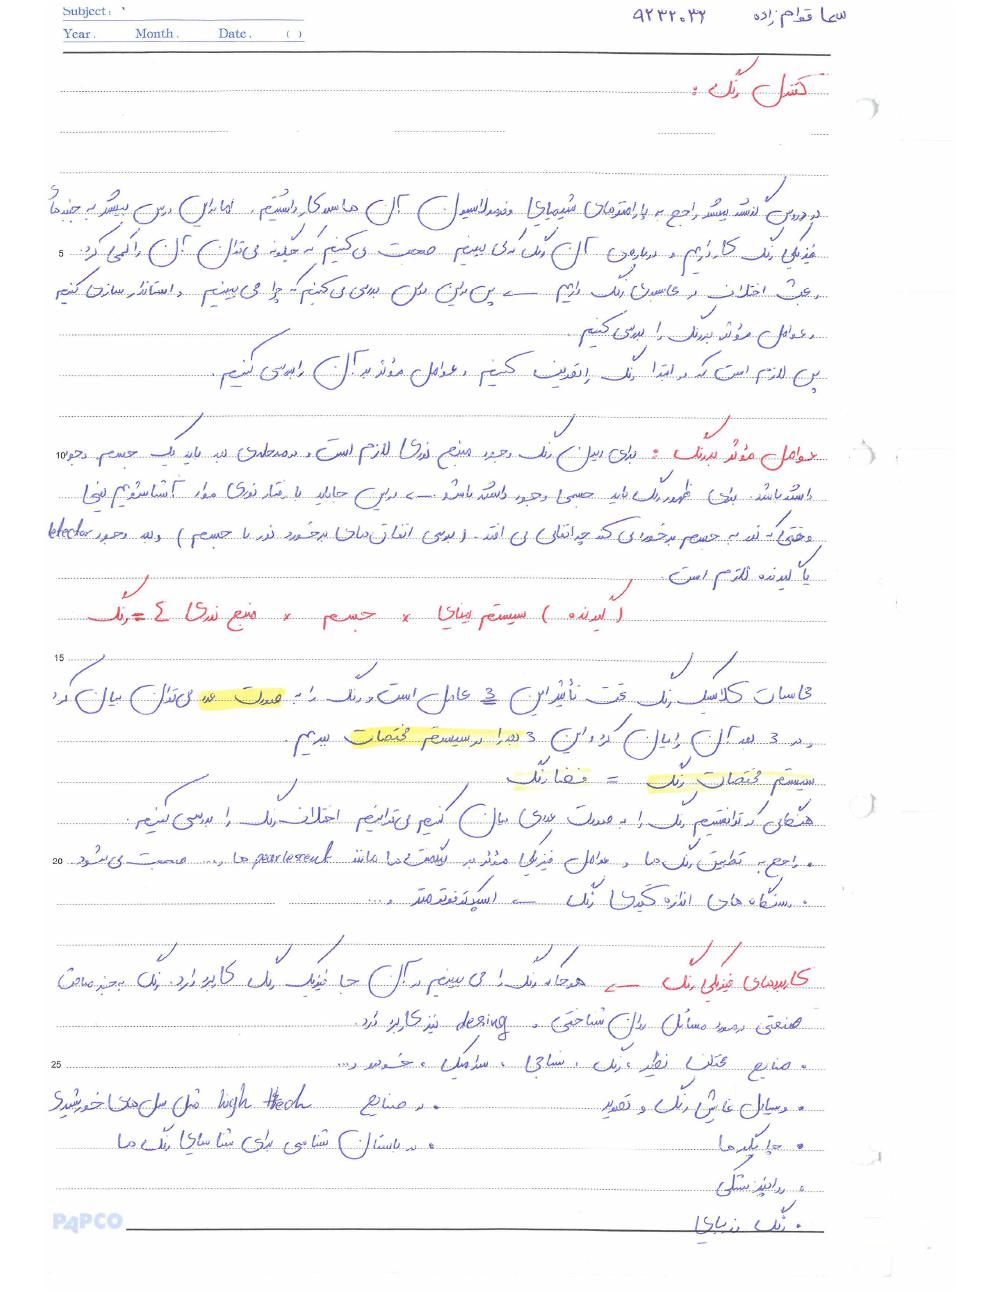 Subject:
Year. Month. Date. ( )
سما قوام زاده ۹۲۳۲۰۳۳
کنترل رنگ :
در دروس گذشته بیشتر راجع به پارامترهای شیمیایی و فرمولاسیون آن ها سروکار داشتیم. اما در این درس بیشتر به جنبه های
5 فیزیکی رنگ کار داریم و درباره ی آن رنگ که می بینیم صحبت می کنیم که چگونه می توان آن را کمی کرد.
و بحث اختلاف و محاسبه ی رنگ داریم ← پس در این درس بررسی می کنیم که چرا می بینیم و استانداردسازی کنیم
و عوامل مؤثر بر رنگ را بررسی کنیم.
پس لازم است که در ابتدا رنگ را تعریف کنیم و عوامل مؤثر بر آن را بررسی کنیم.
10 عوامل مؤثر بر رنگ : برای دیدن رنگ وجود منبع نوری لازم است و در مرحله ی بعد باید یک جسم وجود
داشته باشد. برای ظهور رنگ باید جسمی وجود داشته باشد ← در این جا باید با رفتار نوری مواد آشنا شویم یعنی
وقتی که نور به جسم برخورد می کند چه اتفاقی می افتد. (بررسی اتفاق های برخورد نور با جسم) و بعد وجود detector
یا گیرنده لازم است.
رنگ = ع منبع نوری × جسم × سیستم بینایی (گیرنده)
15
محاسبات کلاسیک رنگ تحت تأثیر این 3 عامل است و رنگ را به صورت عدد می توان بیان کرد
و در 3 بعد آن را بیان کرد و این 3 بعد را در سیستم مختصات ببریم.
سیستم مختصات رنگ = فضا رنگ
هنگامی که توانستیم رنگ را به صورت عددی بیان کنیم می توانیم اختلاف رنگ را بررسی کنیم.
20 • راجع به تطبیق رنگ ها و عوامل فیزیکی مؤثر بر ها مانند pearlescent ها و... صحبت می شود
• دستگاه های اندازه گیری رنگ ← اسپکتروفتومتر و...
کاربردهای فیزیکی رنگ ← هرجا که رنگ را می بینیم در آن جا فیزیک رنگ کاربرد دارد. رنگ به جز مباحث
صنعتی در مورد مسائل روان شناختی و desing نیز کاربرد دارد.
25 • صنایع مختلف نظیر رنگ، نساجی، سرامیک، خودرو و...
• وسایل نمایش رنگ و تصویر • در صنایع high tech مثل سل های خورشیدی
• چاپگرها • در باستان شناسی برای شناسایی رنگ ها
• در پزشکی
• رنگ زیبایی
PAPCO